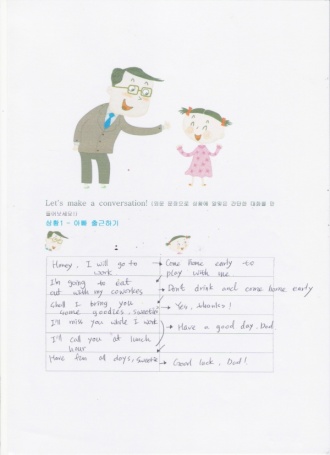 Let's make a conversation! (쉬운 문장으로 상황에 알맞은 간단한 대화를 만
들어보세요!)
상황1 - 아빠 출근하기
Honey, I will go to work
Come home early to play with me
I'm going to eat out with my coworkers
Don't drink and come home early
Shall I bring you some goodies, sweetie
Yes, thanks!
I'll miss you while I work
Have a good day, Dad
I'll call you at lunch hour
Have fun all days, sweetie
Good luck, Dad!